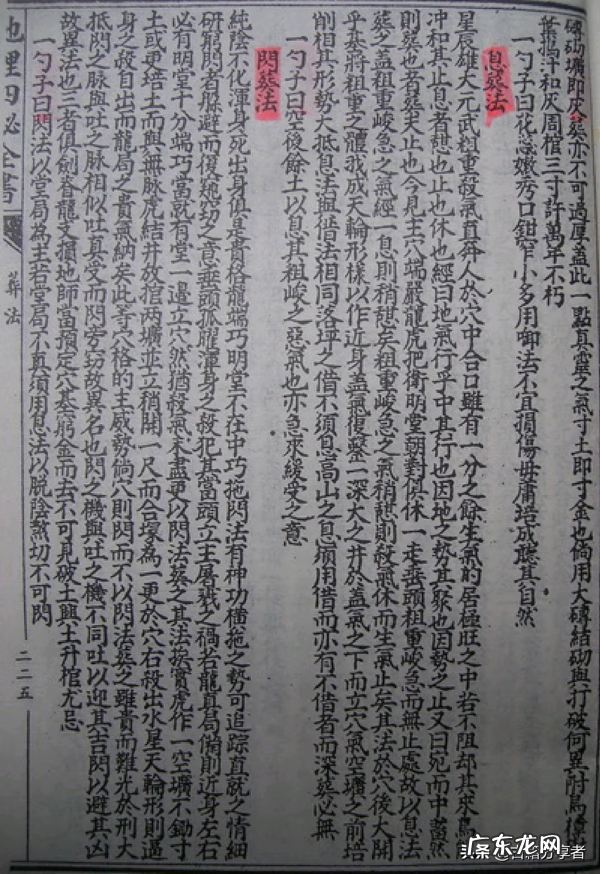 磚砌壙即灰葬亦不可過厚蓋此一點真靈之氣寸土即寸金也倘用大磚結砌與打破何異附烏樟
葉搗汁和灰周棺三寸許萬年不朽
一勺子曰花蕊嫩秀口鉗窄小多用啣法不宜損傷毋庸培成聽其自然
息葬法
星辰雄大元武粗重殺氣直奔人於穴中合口雖有一分之餘生氣的居極旺之中若不阻却其來
冲和其止息者憩也止也休也經曰地氣行乎中其行也因地之勢其聚也因勢之止又曰死而中蓄然
則葬也者葬夫止也今見主穴端嚴龍虎把衛明堂朝對俱休一走垂頭粗重峻急而無止處故以息法
葬之蓋粗重峻急之氣經一息則稍憩矣粗重峻急之氣稍憩則殺氣休而生氣止矣其法於穴後大開
乎基將粗重之體裁成天輪形樣以作近身蓋氣復鑿一深大之井於蓋氣之下而立穴氣空壙之前培
削相其形勢大抵息法與借法相同落坪之借不須息高山之息須用借而亦有不借者而深葬必無
一勺子曰空後餘土以息其粗峻之惡氣也亦急來緩受之意
閃葬法
純陰不化渾身死出身俱是貴格龍端巧明堂不在中巧拖閃法有神功橫拖之勢可追踪直就之情細
研窮閃者躲避而復窺切之意垂頭孤臞渾身之殺犯其當頭立主屠戮之禍若龍真局備則近身左右
必有明堂十分端巧當就有堂一邊立穴然猶殺氣未盡更以閃法葬之其法挨實虎作一空壙不鋤寸
土或更培土而與無脉虎結井放棺两壙並立稍開一尺而合塚為一更於穴右殺出水星天輪形則逼
身之殺自出而龍局之貴氣納矣此等穴格的主威勢倘穴則閃而不以閃法葬之雖貴而難光於刑大
抵閃之脉與吐之脉相似吐真受而閃旁窃故異名也閃之機與吐之機不同吐以迎其吉閃以避其凶
故異法也三者俱劍脊龍支損地師當預定穴基窮金而去不可見破土興土升棺尤忌
一勺子曰閃法以堂局為主若堂局不真須用息法以脱陰煞切不可閃
地理四秘全書
葬法
二二五
广东龙网
头条@古籍分享者